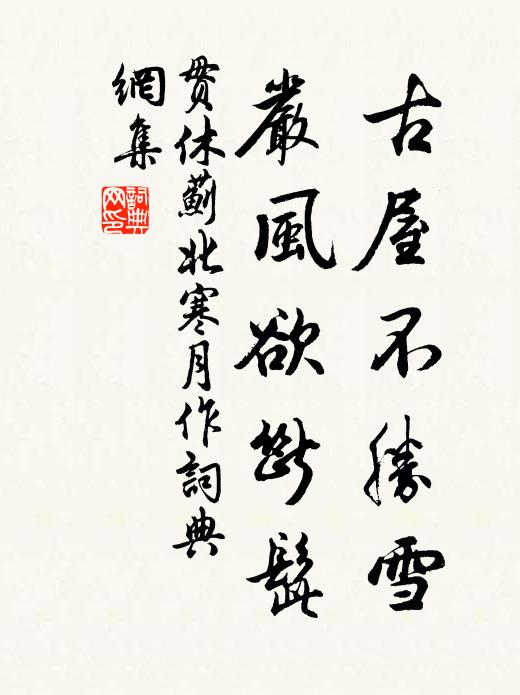 古屋不勝雪
嚴風欲斷髭
貫休薊北寒月作詞典
網集
詞典
网印